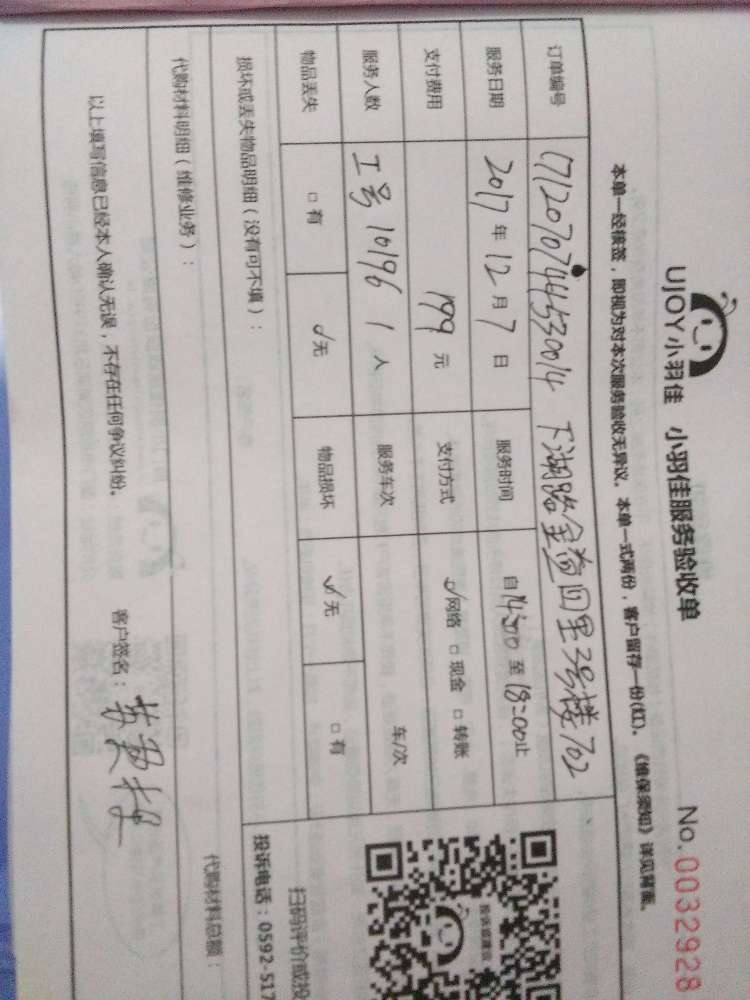 UJOY小羽佳 小羽佳服务验收单 No.0032928
本单一经接签，即视为对本次服务验收无异议。本单一式两份，客户留存一份(红)。《维保须知》详见背面。
订单编号 1712070744530014 下湖路金益四里3号楼702
服务日期 2017年12月7日 服务时间 自14:00至18:00止
支付费用 199元 支付方式 ☑网络 □现金 □转账
服务人数 工号10196 1人 服务车次 车/次
物品丢失 □有 ☑无 物品损坏 ☑无 □有
损坏或丢失物品明细（没有可不填）：
代购材料明细（维修业务）：
代购材料总额：
以上填写信息已经本人确认无误，不存在任何争议纠纷。 客户签名：
投诉或建议
扫码评价或投
投诉电话：0592-517